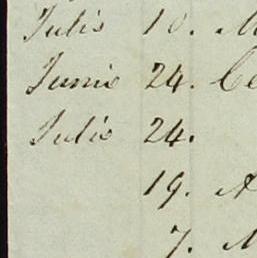 Julis 10. M
Junis 24. Ce
Julis 24.
19. A
7. M